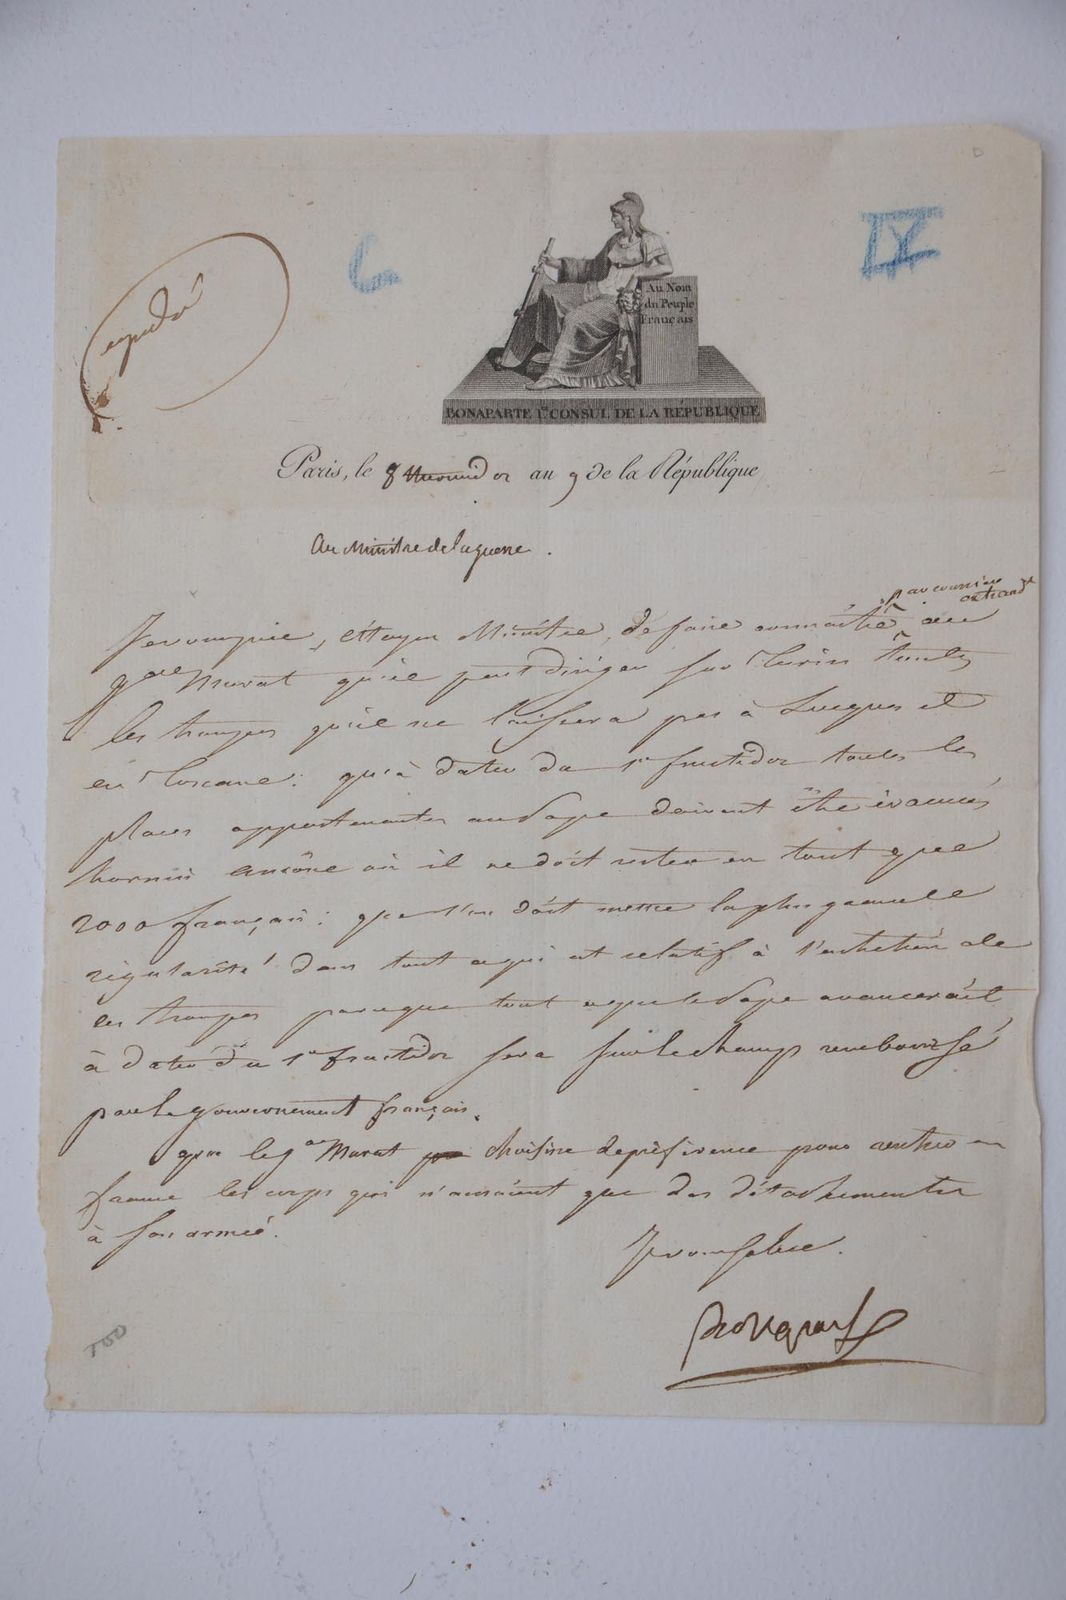 expédié
IX
Au Nom
du Peuple
Français
BONAPARTE 1er CONSUL DE LA RÉPUBLIQUE
Paris, le 8 thermidor an 9 de la République
Au Ministre de la guerre.
par courrier
extraord
Je vous prie, citoyen Ministre, de faire connaître au
gral Murat qu'il peut diriger sur Turin toutes
les troupes qu'il ne laissera pas à Lucques et
en Toscane: qu'à dater du 1er fructidor toutes les
places appartenantes au Pape doivent être évacuées
hormis Ancône où il ne doit rester en tout que
2000 français: que l'on doit mettre la plus grande
régularité dans tout ce qui est relatif à de
ces troupes parceque tout ce que le Pape avancerait
à dater du 1er fructidor sera sur le champ remboursé
par le gouvernement français.
que le gal Murat choisisse de préférence pour rentrer en
france les corps qui n'auraient que des détachements
à son armée.
Je vous salue.
Bonaparte